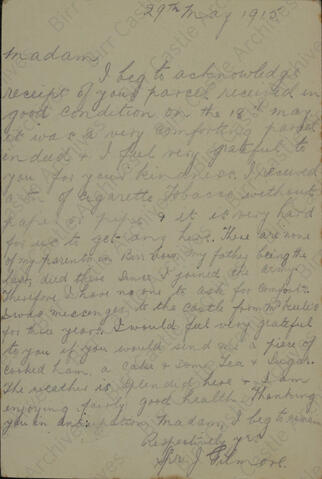 29th May 1915
Madam
I beg to acknowledge
receipt of your parcel received in
good condition on the 18th may
it was a very comforting parcel
indeed & I feel very grateful to
you for your kindness. I received
a tin of cigarette Tobacco without
paper or pipe & it is very hard
for us to get any here. There are none
of my parents in Birr now my father being the
last died there since I joined the army
Therefore I have no one to ask for comforts.
I was messenger to the castle from
for two years. I would feel very grateful
to you if you would send me a piece of
cooked ham a cake & some Tea & Sugar.
The weather is splendid here & I am
enjoying fairly good health. Thanking
you in anticipation Madam I beg to remain
Respectively yrs
J. Gilmore.
Birr Castle Archives